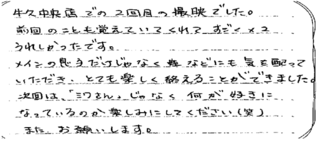 牛久中央店での2回目の撮影でした。
前回のことも覚えていてくれて すごくメチャ
うれしかったです。
メインの良うだけじゃなく 姫などにも気を配って
いただき、とても楽しく終えることができました。
次回は、「ミワさん」じゃなく 何が好きに
なっているのか楽しみにしてください(笑)
また お願いします。